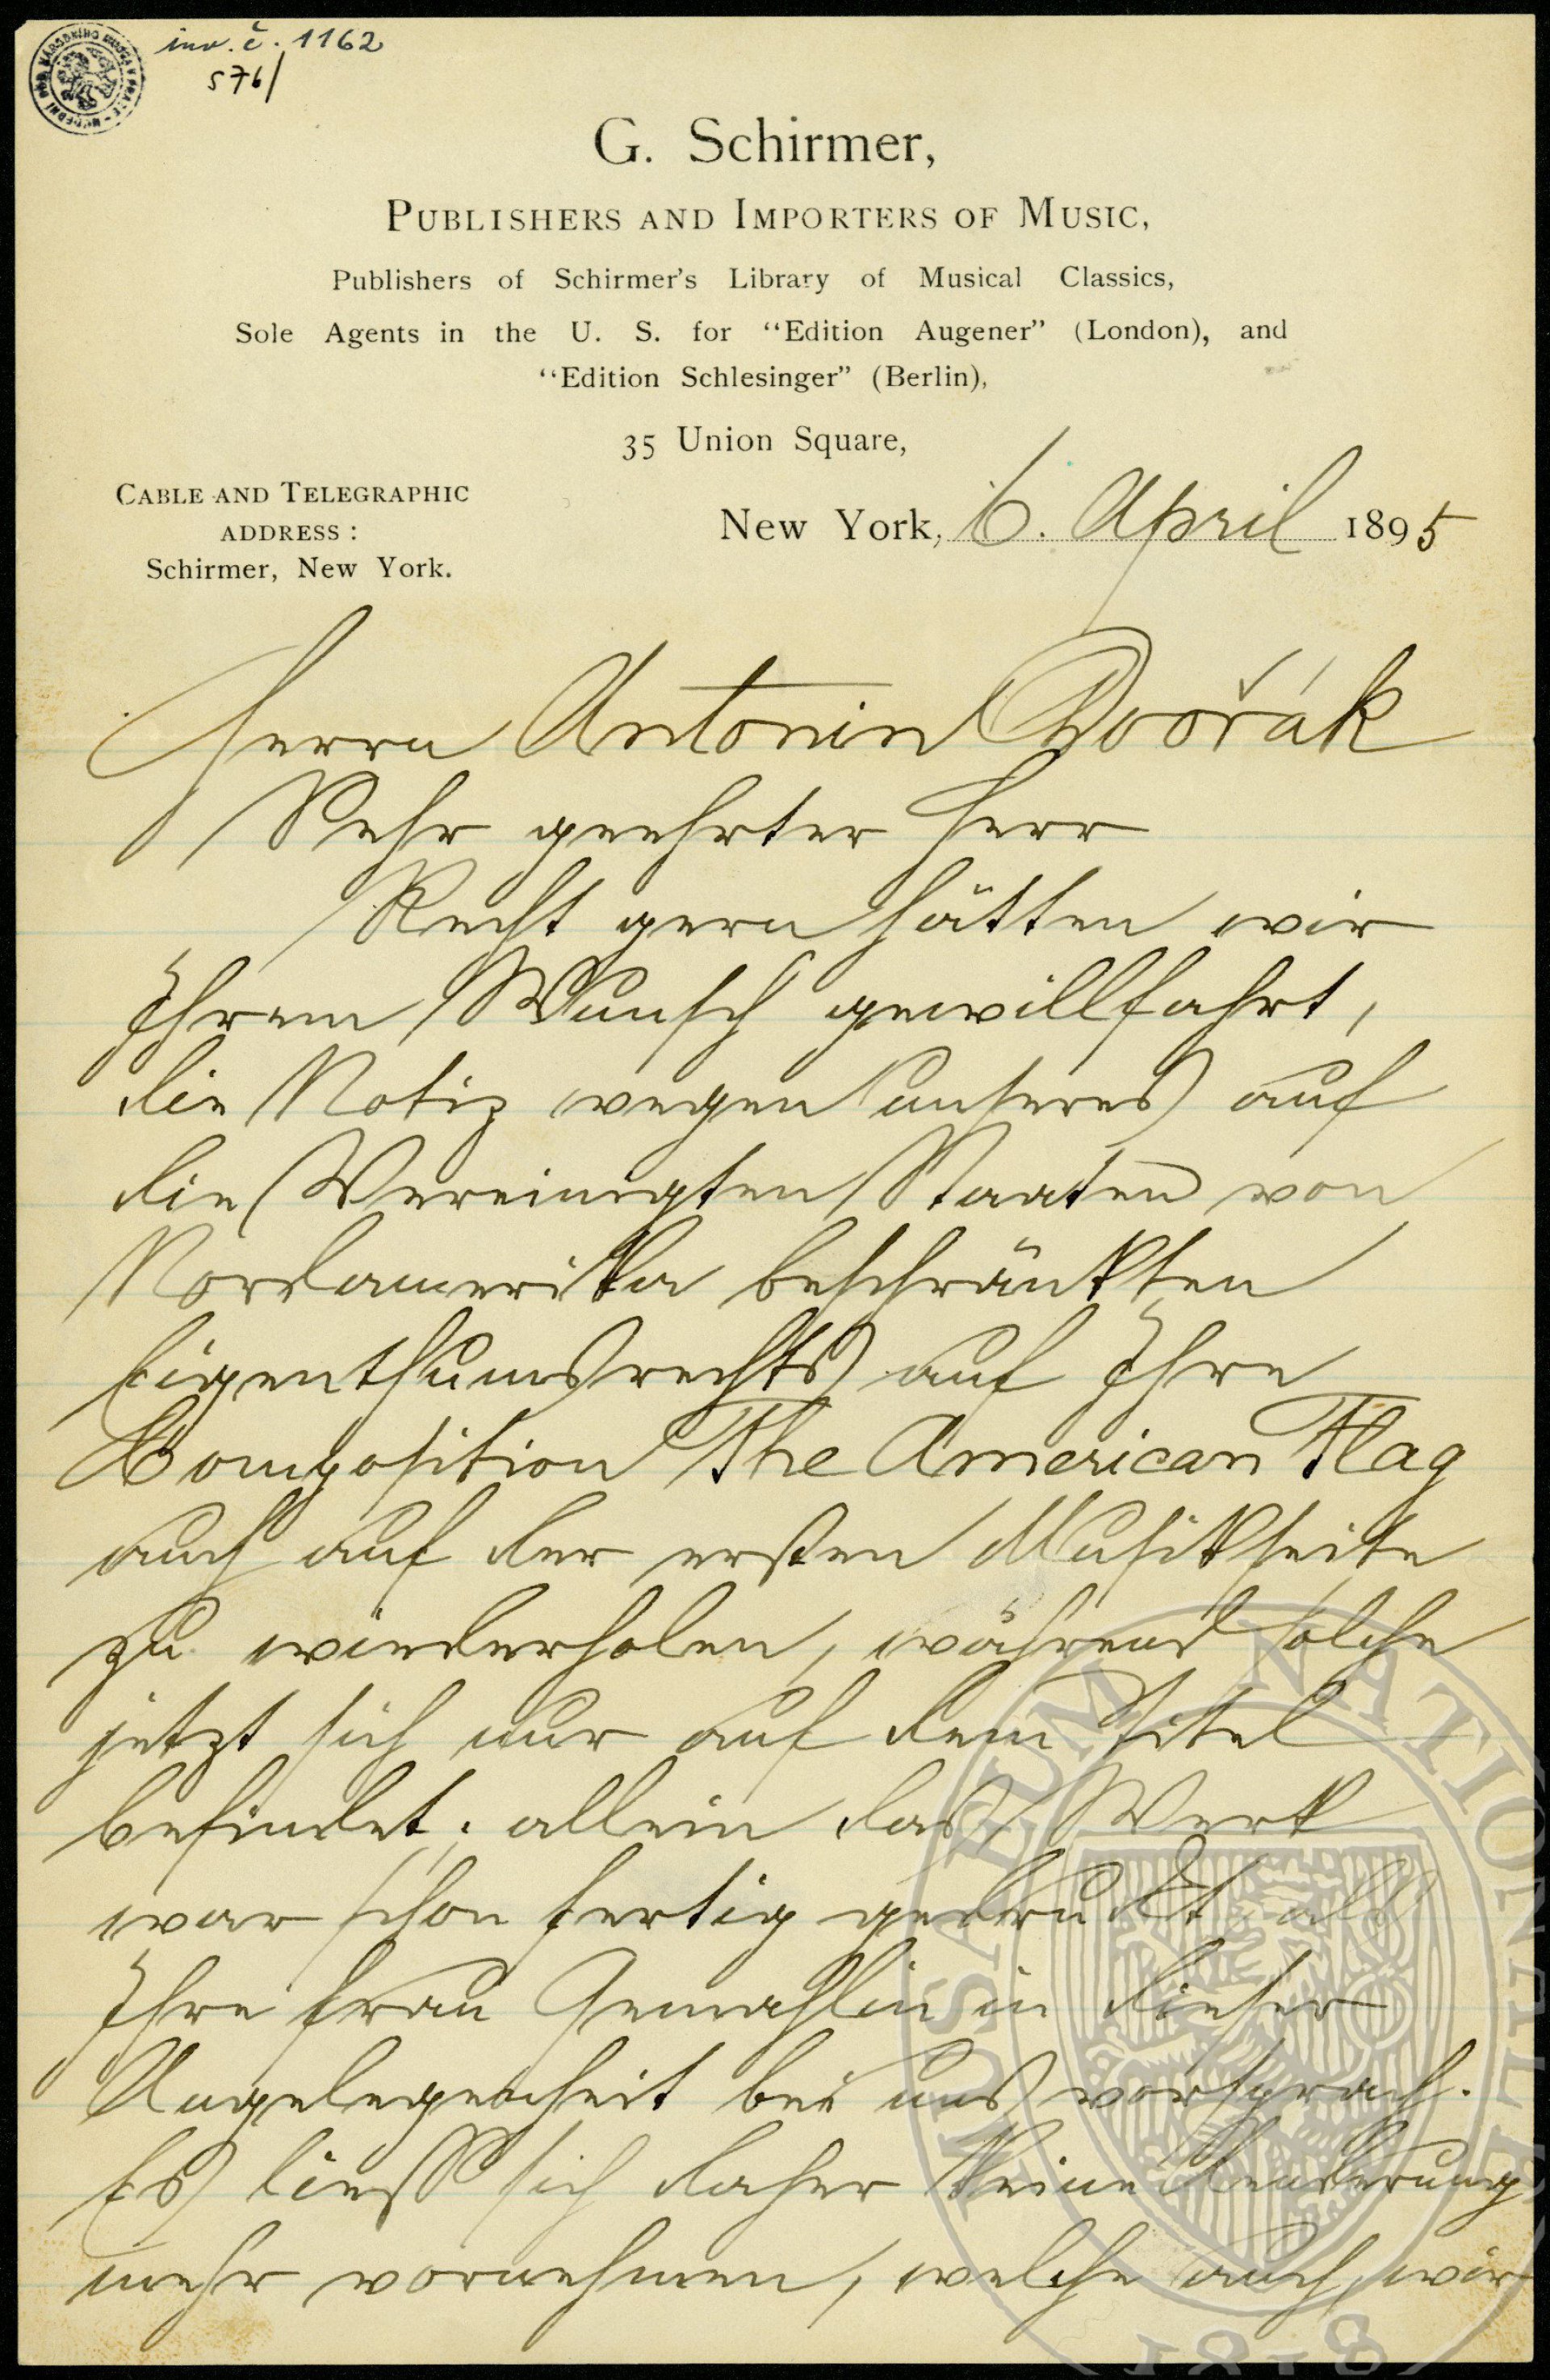 inv. č. 1162
S 76/
G. Schirmer,
PUBLISHERS AND IMPORTERS OF MUSIC,
Publishers of Schirmer's Library of Musical Classics,
Sole Agents in the U. S. for "Edition Augener" (London), and
"Edition Schlesinger" (Berlin),
35 Union Square,
CABLE AND TELEGRAPHIC
ADDRESS:
Schirmer, New York.
New York, 6. April 1895
Herrn Antonin Dvořák
Sehr geehrter Herr
Recht gern hätten wir
Ihrem Wunsch gewillfahrt,
die Notiz wegen unseres auf
die Vereinigten Staaten von
Nordamerika beschränkten
Eigenthumsrechts auf Ihre
Composition The American Flag
auch auf der ersten Musikseite
zu wiederholen, während solche
jetzt sich nur auf dem Titel
befindet; allein das Werk
war schon fertig gedruckt als
Ihre Frau Gemahlin in dieser
Angelegenheit bei uns vorsprach.
Es liess sich daher keine Aenderung
mehr vornehmen, welche auch wir
MUSAEUM NATIONALE
1818